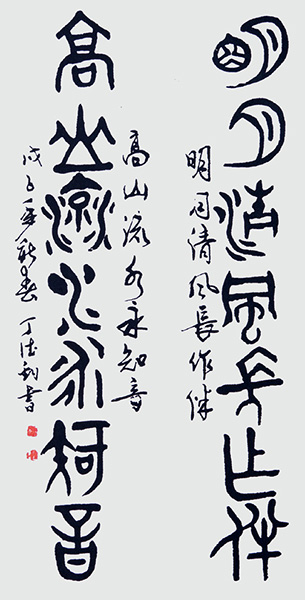 明月清風長乍伴
明月清風長作伴
高山流水永知音
高山流水永知音
戊子年新春 丁書